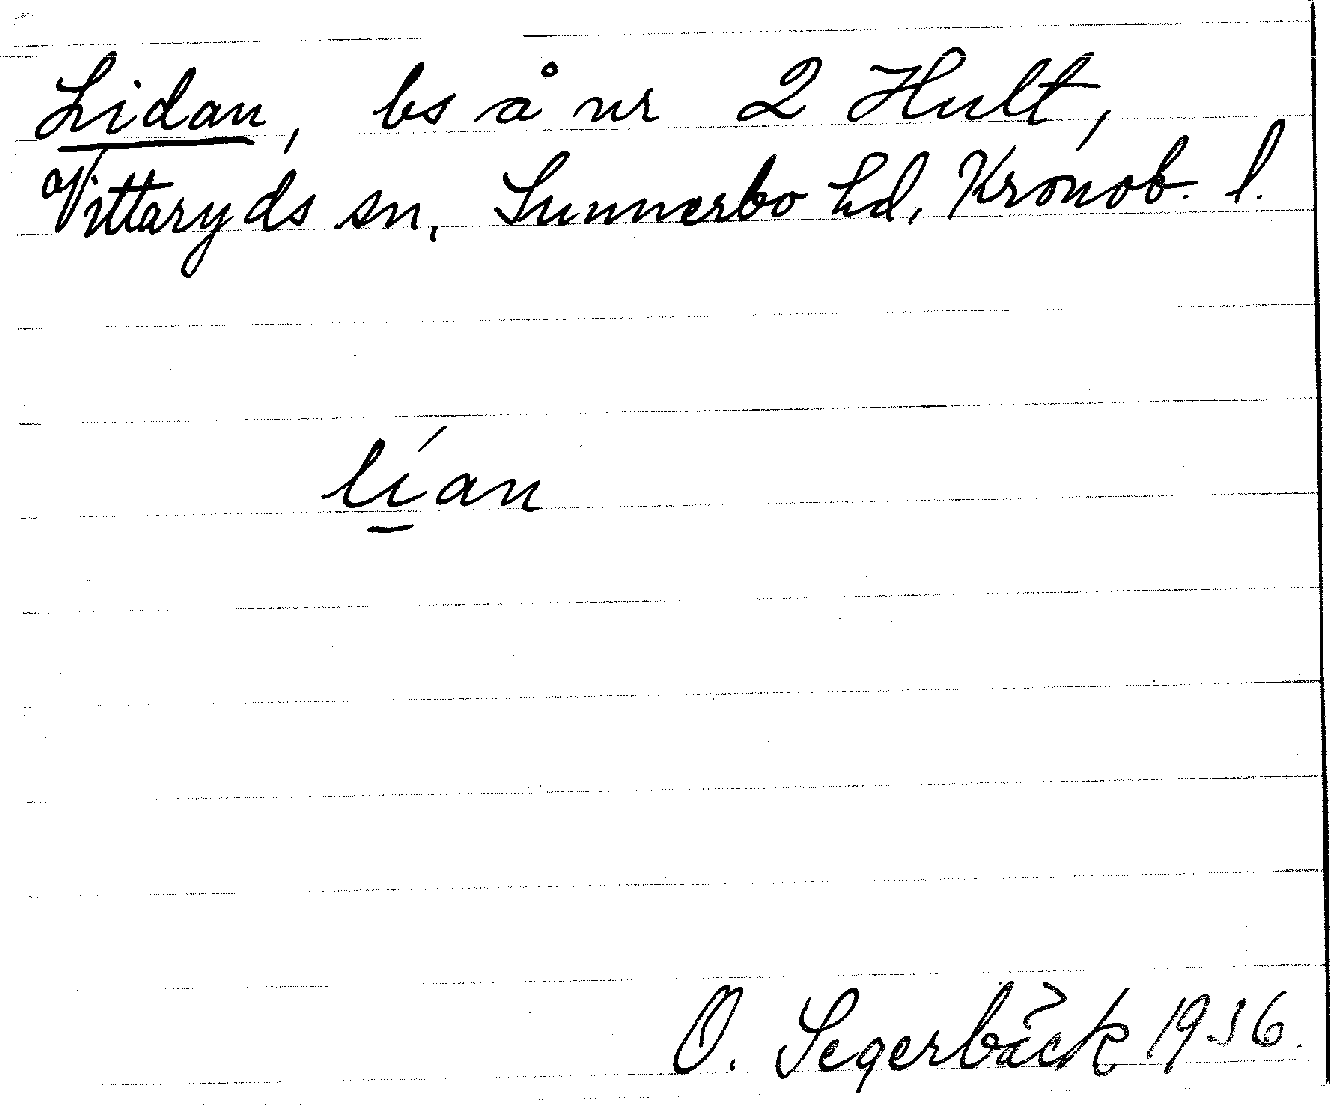 Lidan, bs å nr 2 Hult,
Vittaryds sn, Sunnerbo hd, Kronob. l.
lían
O. Segerbäck 1936.